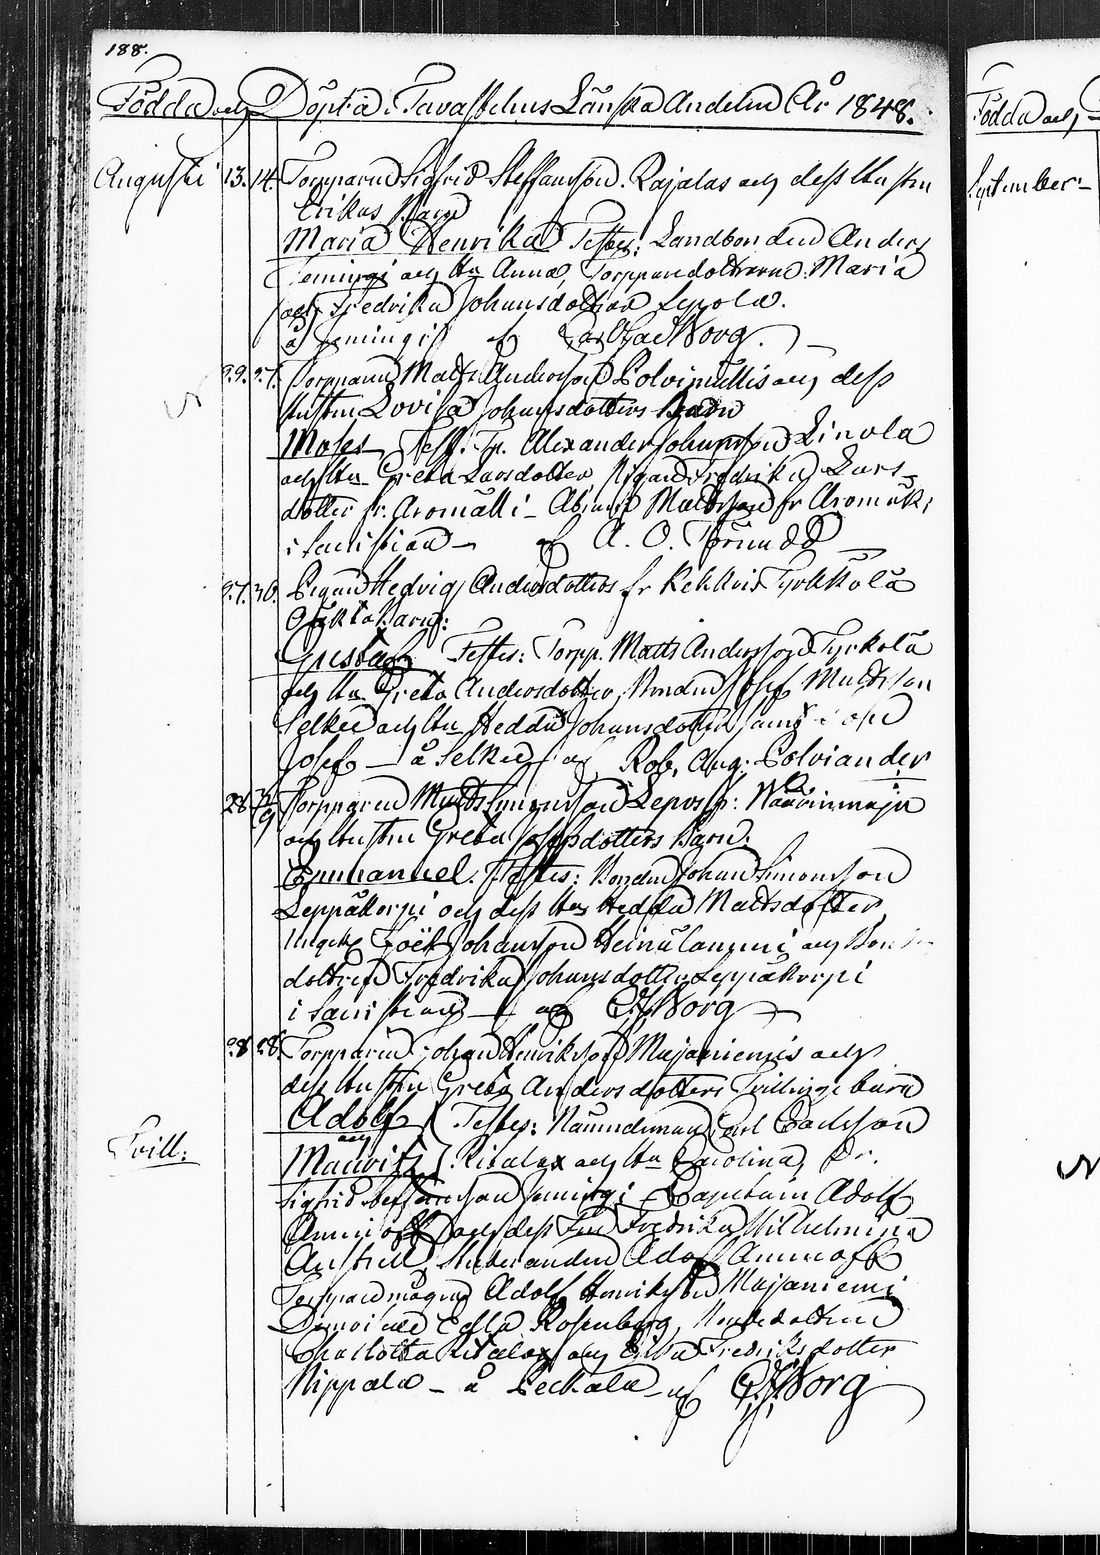 188.
Födda och Döpta i Tavastehus Länska Andelen År 1848.
Födda och
Augusti 13. 14. Torparen Sigfrid Steffansson Rajalas och dess Hustru
September
Erikas Barn
Maria Henrika Testes: Landbonden Anders
Jemingi och Hu Anna, Torparedöttrarne Maria
och Fredrika Johansdöttrar Lepola.
å Jemingi af Borg.
22. 27. Torparen Matts Andersson Polvimällis och dess
Hustru Lovisa Johansdotters Barn
Moses Test. Tp. Alexander Johansson Linola
och Hu Greta Larsdotter, Pigan Fredrika Lars
dotter fr. Aromäki Mattsson fr Aromäki
i af A. O. Törnudd
27. 30. Pigan Hedvig Andersdotters fr Kehkvis Tyrkkölä
Oäkta Barn:
Gustaf Testes: Torp. Matts Andersson Tyrkölä
och Hu Greta Andersdotter, Bonden Josef Mattsson
Selkee och Hu Hedda Johansdotter samt Son
Josef å Selkee af Rob. Aug. Polviander
28. 3/9 Torparen Matts Simonsson Lepos fr: Wäärinmaja
och Hustru Greta Josefsdotters Barn.
Emmanuel. Testes: Bonden Johan Simonsson
Leppäkorpi och dess Hu Hedda Mattsdotter,
Ungk. Johansson Heinälammi och Bonde
dottren Fredrika Johansdotter Leppäkorpi
i af Borg
28 28. Torparen Johan Henriksson Majaniemis och
dess Hustru Greta Andersdotters Tvillingebarn
Adolf Testes: Nämndeman Carl
och
Tvill:
Mauritz Ritalax och Hu Carolina, Dr.
Sigfrid Steffansson Jemingi, Capitain Adolf
Aminoff och dess Fru Fredrika Wilhelmina
Studeranden Adolf Aminoff
Torparemågen Adolf Henriksson Majaniemi
Demoiselle Rosenberg, Bondedottren
Charlotta Ritalax och Fredriksdotter
Nippala å Peckala af Borg